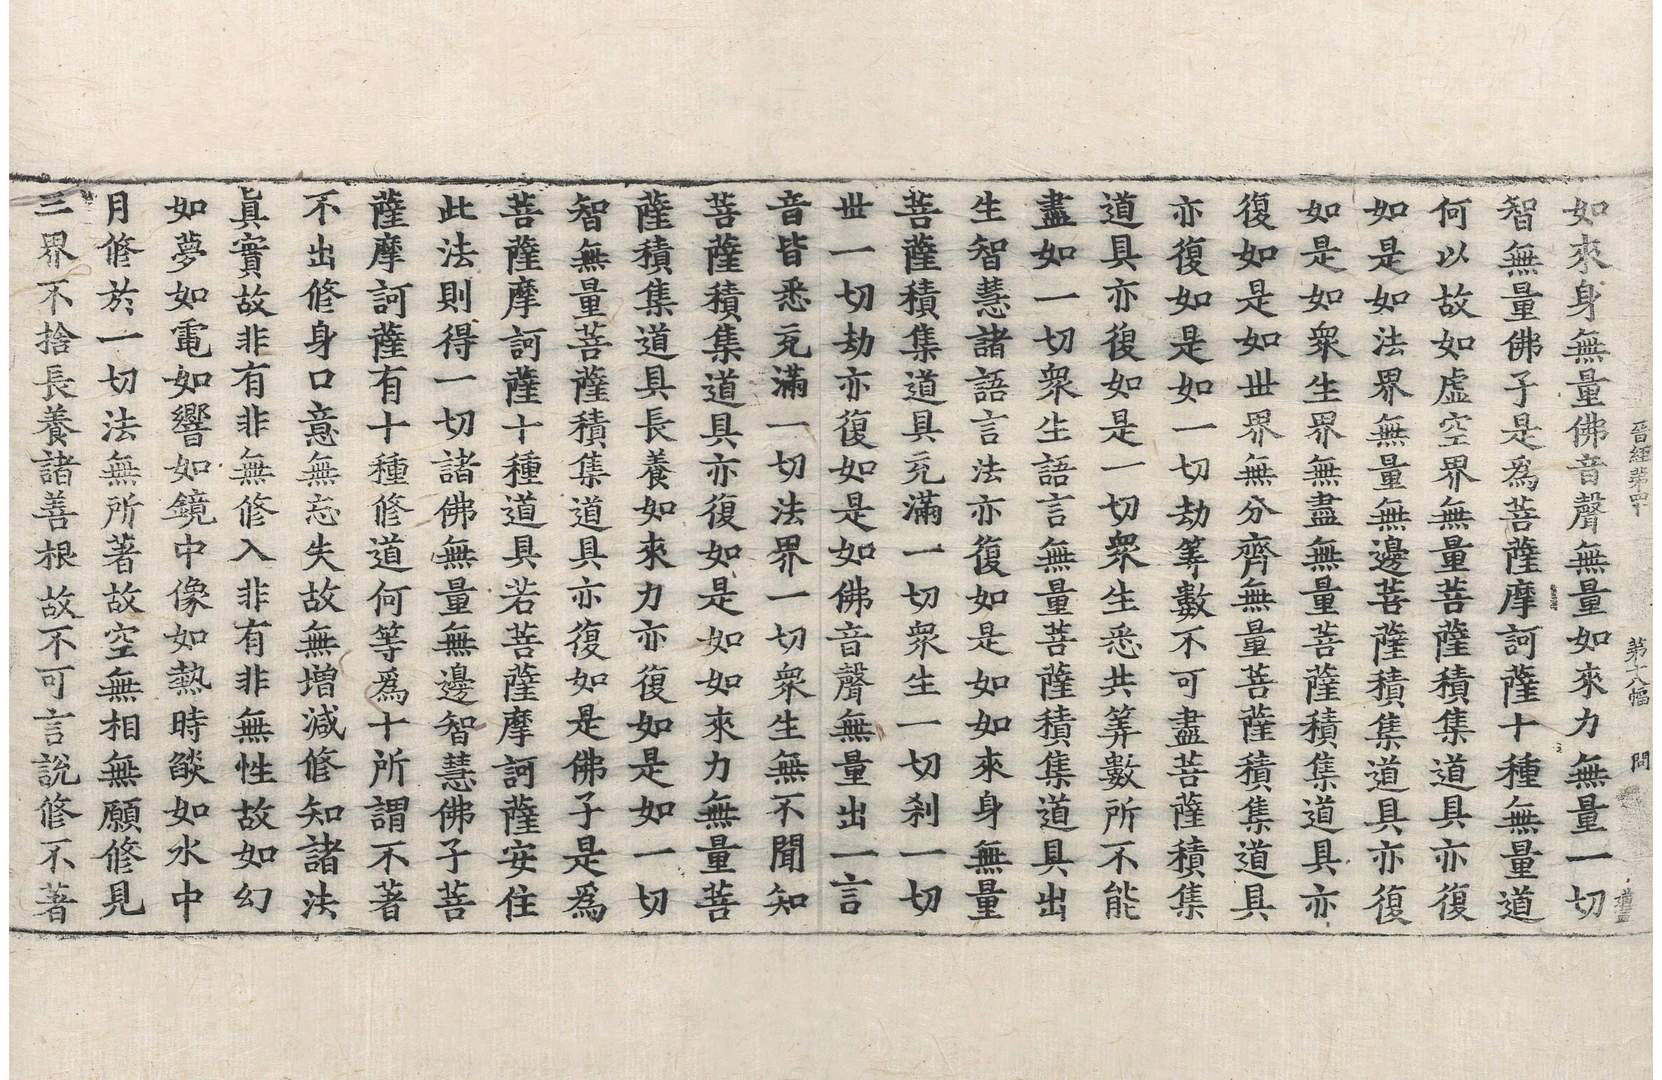 晉經第四十 第十八幅 問
如來身無量佛音聲無量如來力無量一切
智無量佛子是爲菩薩摩訶薩十種無量道
何以故如虛空界無量菩薩積集道具亦復
如是如法界無量無邊菩薩積集道具亦復
如是如衆生界無盡無量菩薩積集道具亦
復如是如世界無分齊無量菩薩積集道具
亦復如是如一切劫等數不可盡菩薩積集
道具亦復如是一切衆生悉共筭數所不能
盡如一切衆生語言無量菩薩積集道具出
生智慧諸語言法亦復如是如如來身無量
菩薩積集道具充滿一切衆生一切刹一切
世一切劫亦復如是如佛音聲無量出一言
音皆悉充滿一切法界一切衆生無不聞知
菩薩積集道具亦復如是如如來力無量菩
薩積集道具長養如來力亦復如是如一切
智無量菩薩積集道具亦復如是佛子是爲
菩薩摩訶薩十種道具若菩薩摩訶薩安住
此法則得一切諸佛無量無邊智慧佛子菩
薩摩訶薩有十種修道何等爲十所謂不著
不出修身口意無忘失故無增減修知諸法
眞實故非有非無修入非有非無性故如幻
如夢如電如響如鏡中像如熱時燄如水中
月修於一切法無所著故空無相無願修見
三界不捨長養諸善根故不可言說修不著